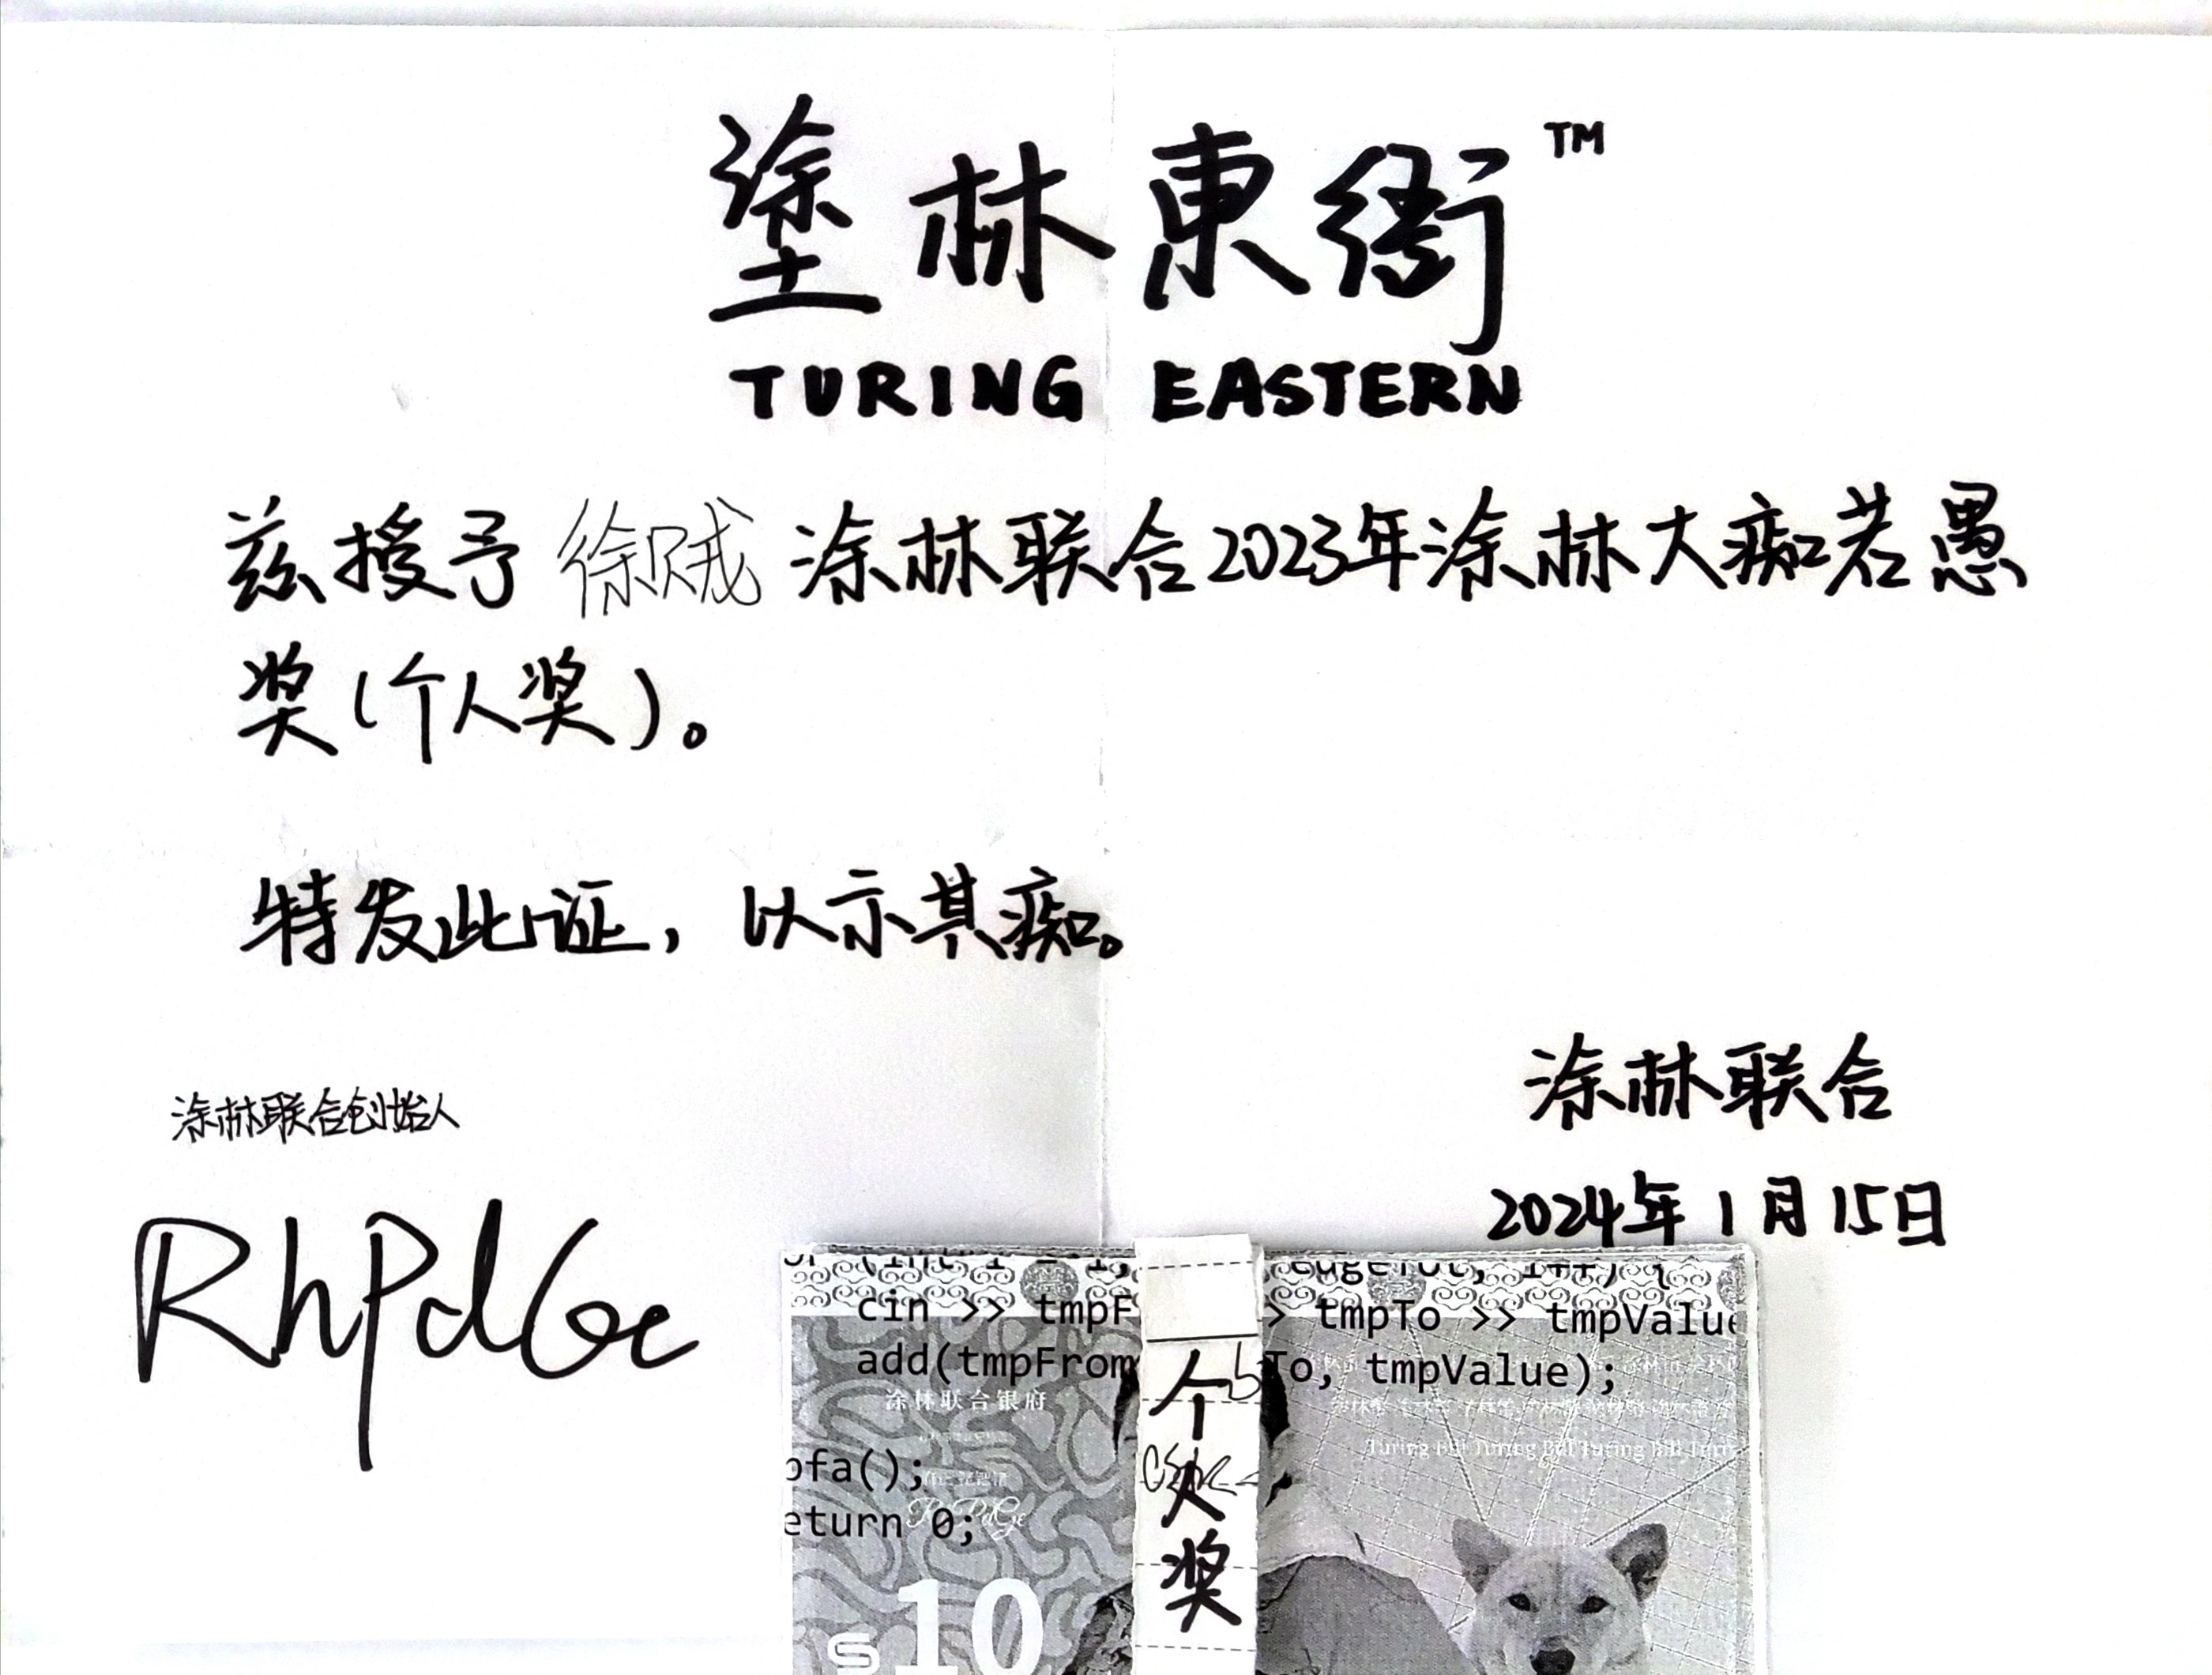 塗林東衙™
TURING EASTERN
兹授予 徐贼 涂林联合2023年涂林大痴若愚
奖(个人奖)。
特发此证,以示其痴。
涂林联合创始人
RhPdGe
涂林联合
2024年1月15日
cin >> tmpF > tmpTo >> tmpValue
add(tmpFrom To, tmpValue);
涂林联合银府
Turing Bill Turing Bill Turing Bill Turi
ofa();
eturn 0;
RhPdGe
10
个人奖